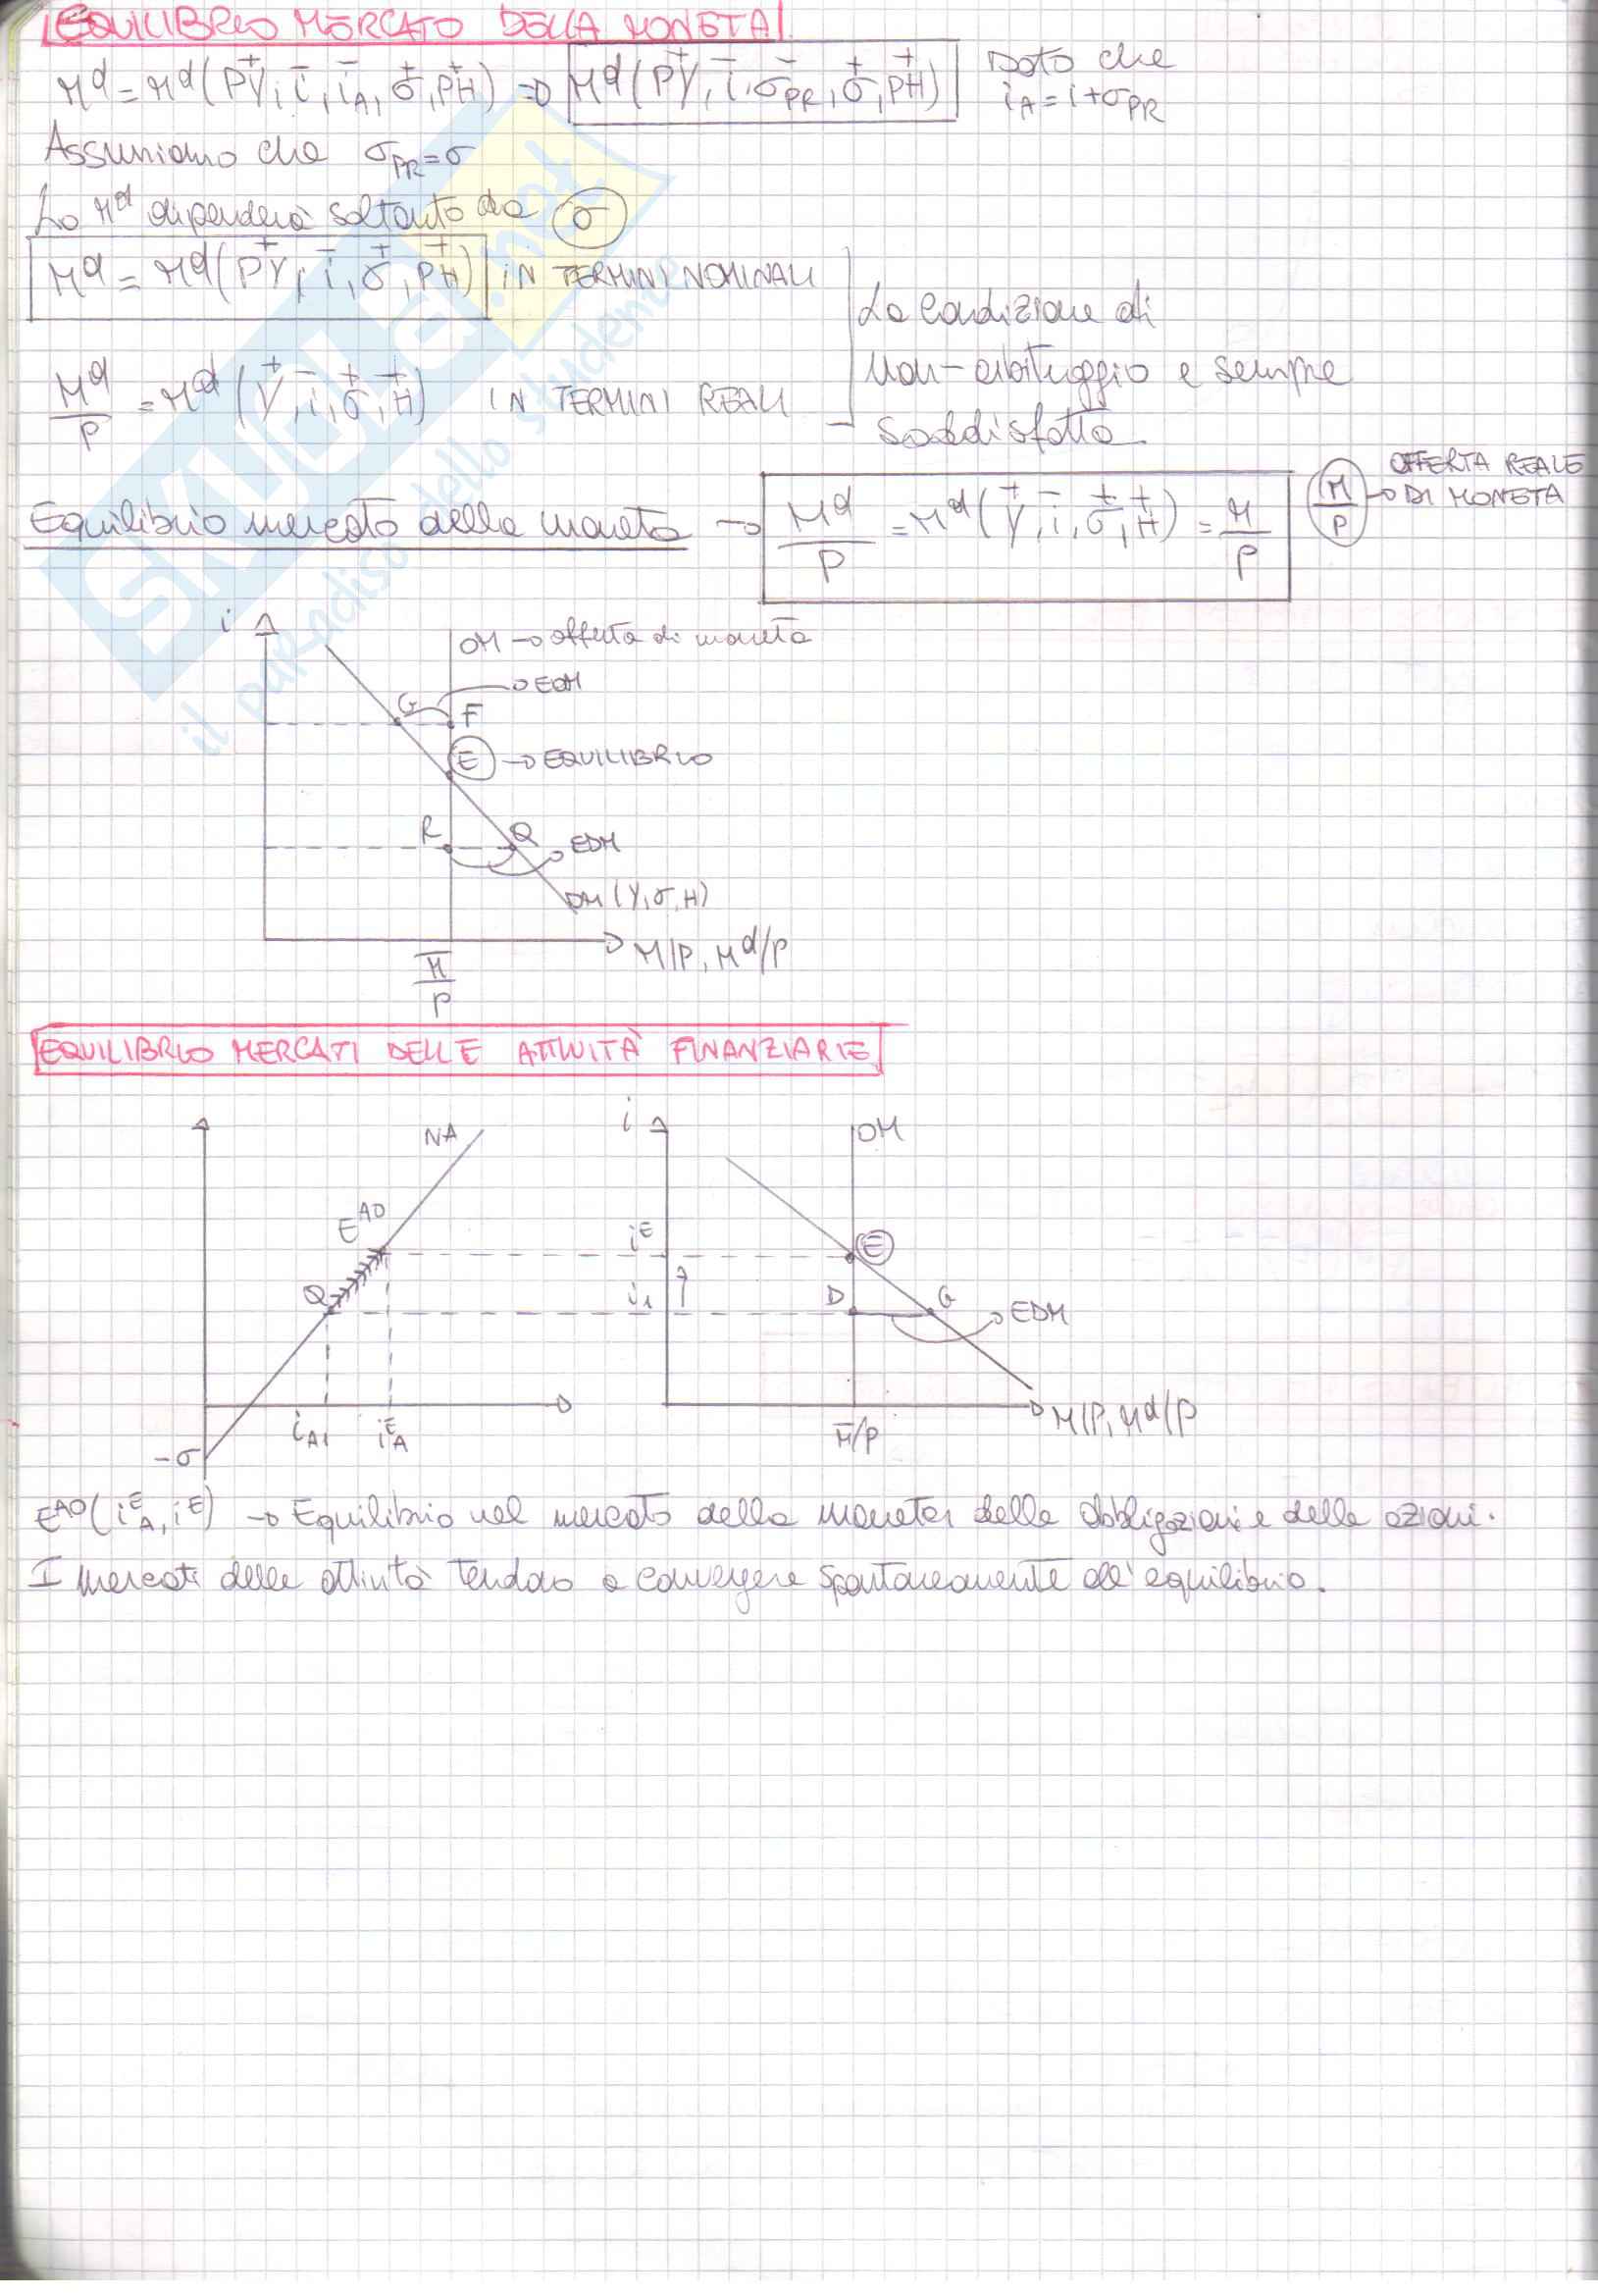 EQUILIBRIO MERCATO DELLA MONETA
Mᵈ = Mᵈ(PY⁺, i⁻, i_A⁻, σ⁺, PH⁺) ⇒ Mᵈ(PY⁺, i⁻, σ_PR⁻, σ⁺, PH⁺) Dato che
i_A = i + σ_PR
Assumiamo che σ_PR = σ
La Mᵈ dipenderà soltanto da σ
Mᵈ = Mᵈ(PY⁺, i⁻, σ⁺, PH⁺) IN TERMINI NOMINALI
Mᵈ/P = Mᵈ(Y⁺, i⁻, σ⁺, H⁺) IN TERMINI REALI
La condizione di
non-arbitraggio e sempre
soddisfatta.
Equilibrio mercato della moneta → Mᵈ/P = Mᵈ(Y⁺, i⁻, σ⁺, H⁺) = M/P
M/P → OFFERTA REALE
DI MONETA
i
OM → offerta di moneta
EOM
G F
E → EQUILIBRIO
R Q EDM
DM (Y, σ, H)
M/P, Mᵈ/P
M̅/P
EQUILIBRIO MERCATI DELLE ATTIVITÀ FINANZIARIE
NA i OM
Eᴬᴼ iᴱ E
Q i₁ D G EDM
i_A1 iᴱ_A M̅/P M/P, Mᵈ/P
-σ
Eᴬᴼ(iᴱ_A, iᴱ) → Equilibrio nel mercato della moneta, delle obbligazioni e delle azioni.
I mercati delle attività tendono a convergere spontaneamente all'equilibrio.
SKUOLA.net
il paradiso dello studente